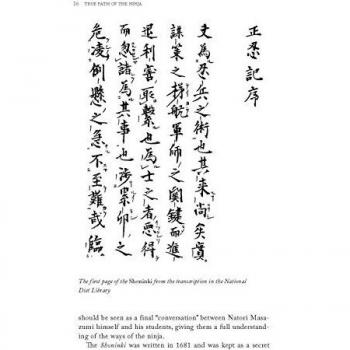 16 TRUE PATH OF THE NINJA
正忍記序
夫為忍兵之術也其来尚矣實
謀策之梯航軍師之関鍵而進
退利害所繋也為士之者悪得
而忽諸為其事也渉累卵之
危凌倒懸之急不至難哉臨
The first page of the Shoninki from the transcription in the National
Diet Library
should be seen as a final “conversation” between Natori Masa-
zumi himself and his students, giving them a full understand-
ing of the ways of the ninja.
The Shoninki was written in 1681 and was kept as a secret